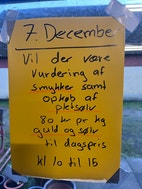 7. December
Vil der være
Vurdering af
smykker samt
opkøb af
pletsølv
80 kr pr kg
guld og sølv
til dagspris
kl 10 til 15